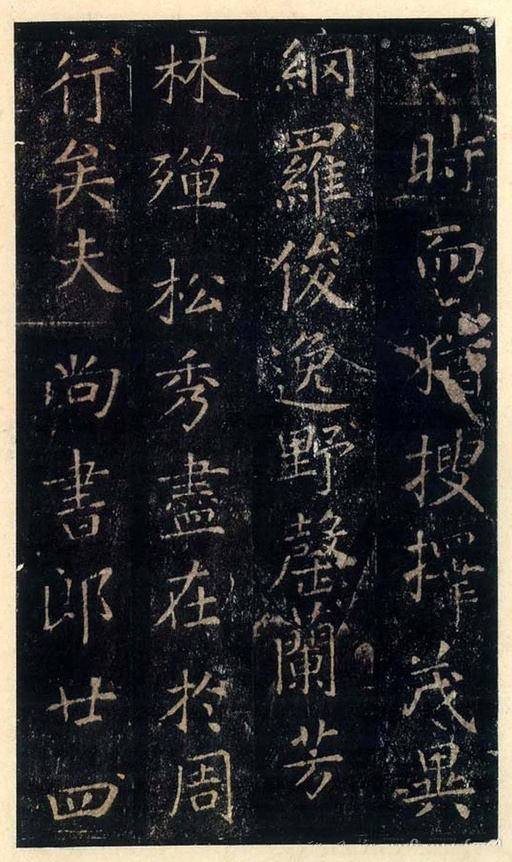 一時而猶搜擢茂異
網羅俊逸野罄蘭芳
林殫松秀盡在於周
行矣夫尚書郎廿四